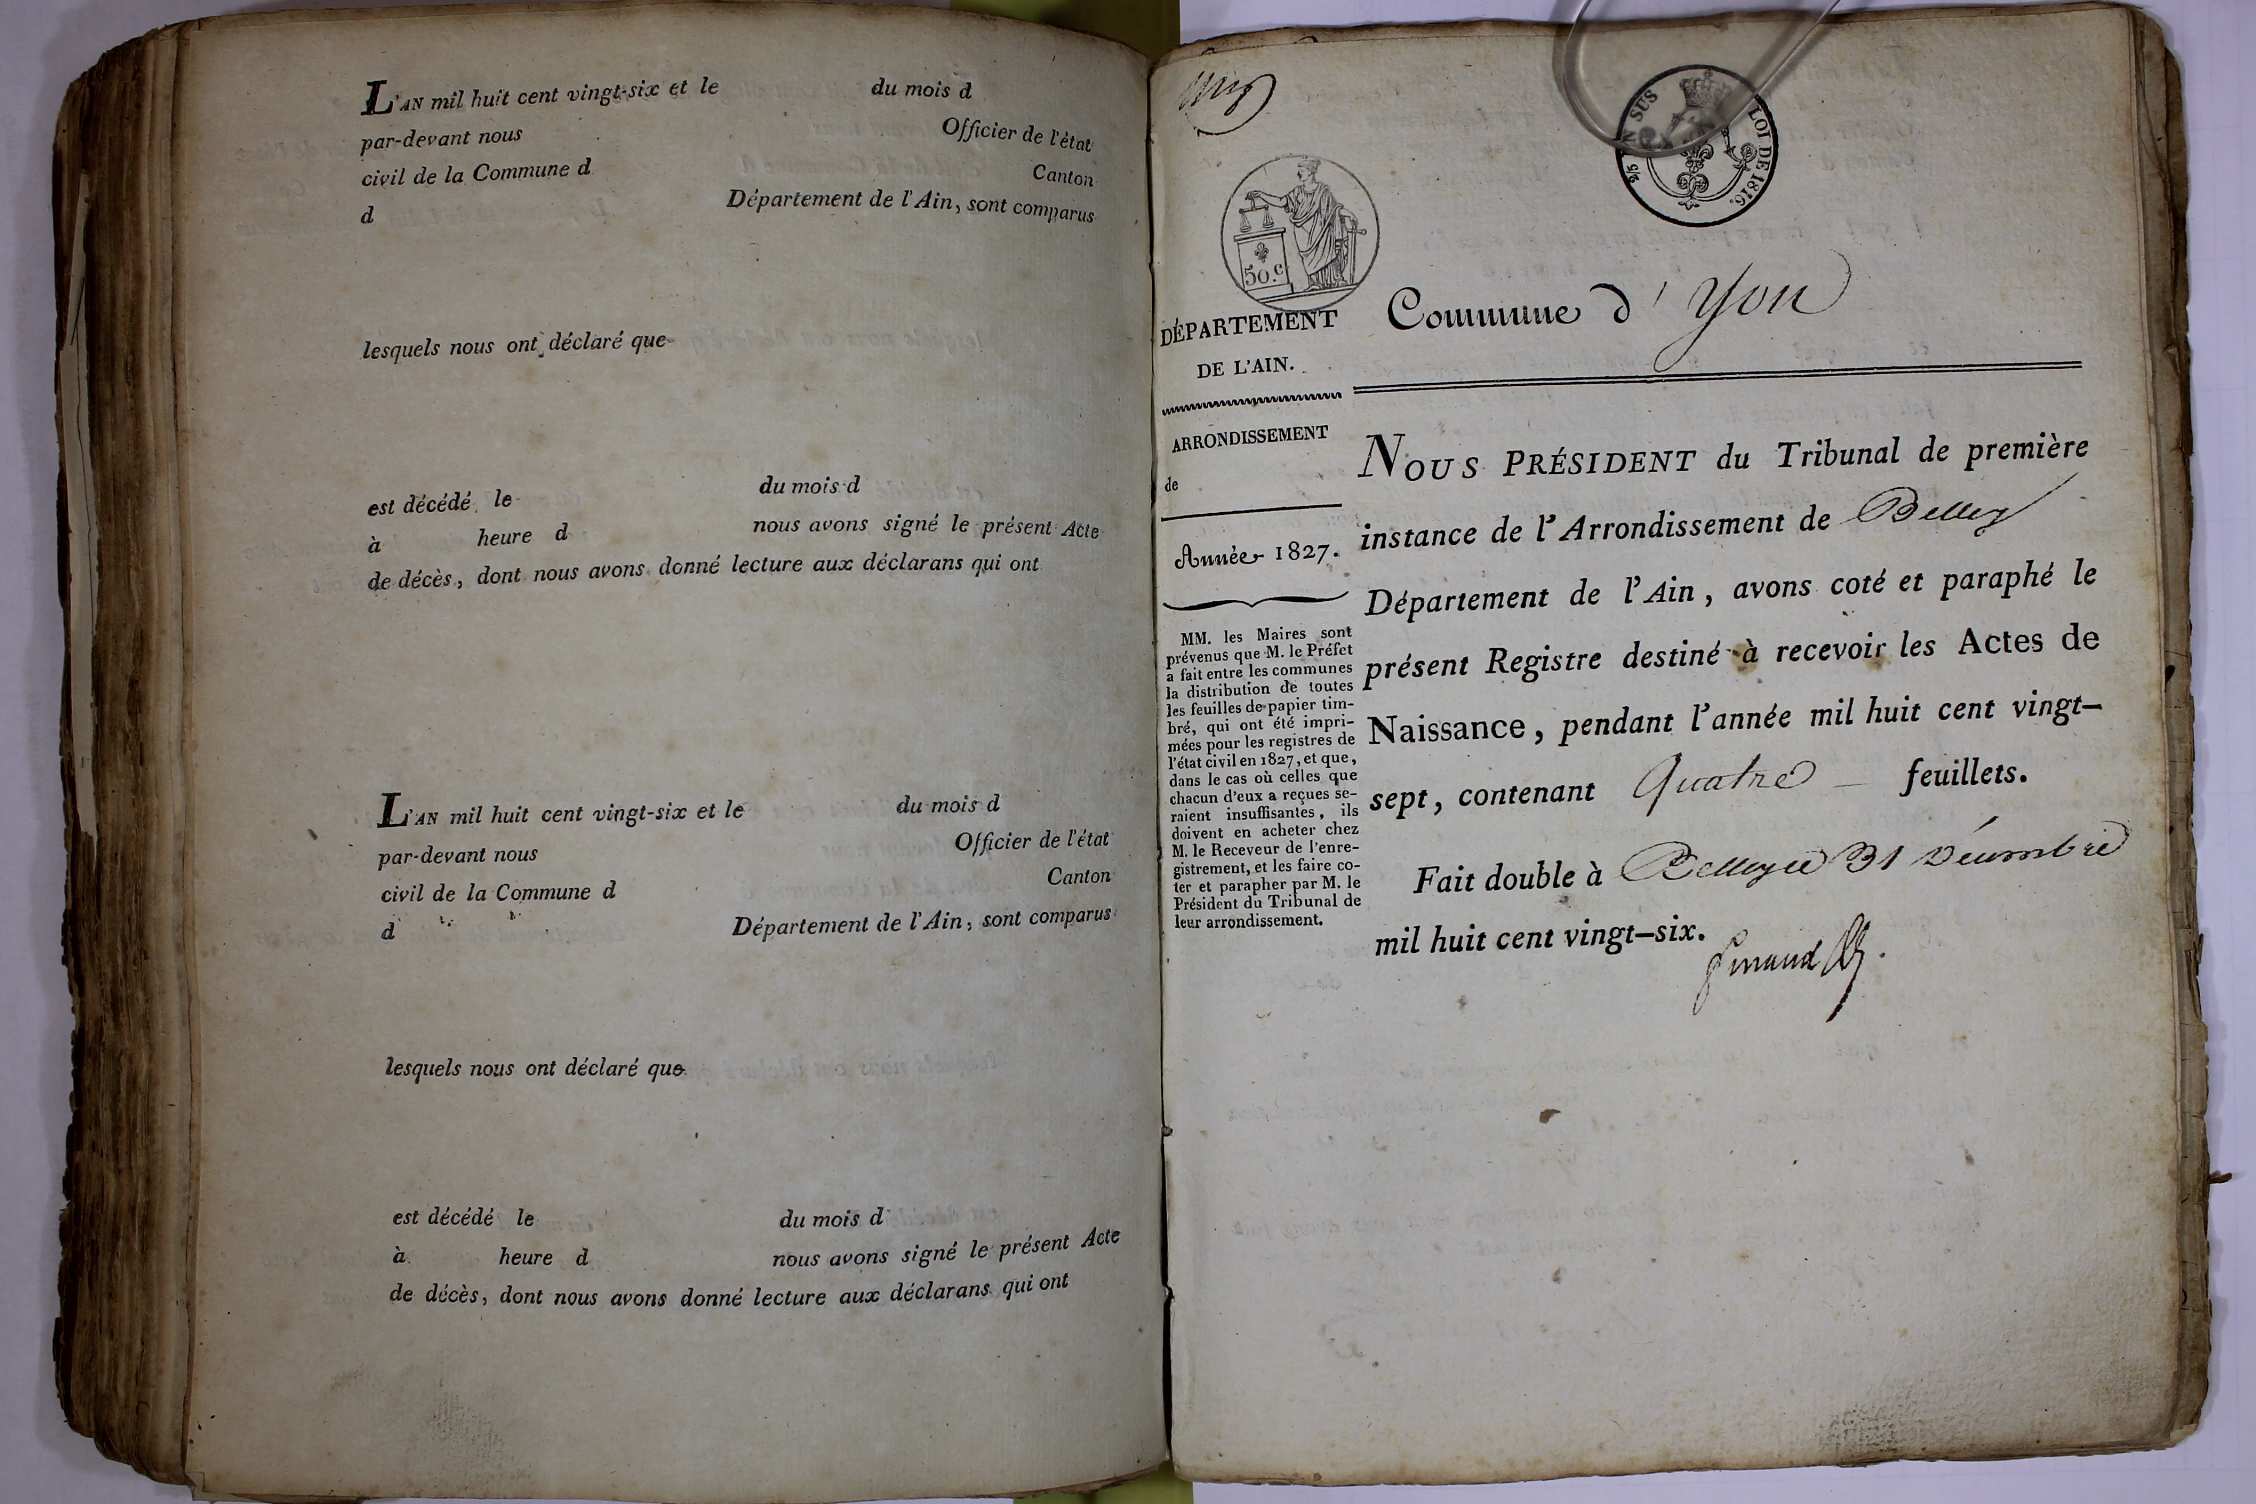 L'AN mil huit cent vingt-six et le du mois d
par-devant nous Officier de l'état
civil de la Commune d Canton
d Département de l'Ain, sont comparus
lesquels nous ont déclaré que
est décédé le du mois d
à heure d nous avons signé le présent Acte
de décès, dont nous avons donné lecture aux déclarans qui ont
L'AN mil huit cent vingt-six et le du mois d
par-devant nous Officier de l'état
civil de la Commune d Canton
d Département de l'Ain, sont comparus
lesquels nous ont déclaré que
est décédé le du mois d
à heure d nous avons signé le présent Acte
de décès, dont nous avons donné lecture aux déclarans qui ont
EN SUS
LOI DE 1816.
50.c
DÉPARTEMENT
DE L'AIN.
ARRONDISSEMENT
de
Année 1827.
MM. les Maires sont
prévenus que M. le Préfet
a fait entre les communes
la distribution de toutes
les feuilles de papier tim-
bré, qui ont été impri-
mées pour les registres de
l'état civil en 1827, et que,
dans le cas où celles que
chacun d'eux a reçues se-
raient insuffisantes, ils
doivent en acheter chez
M. le Receveur de l'enre-
gistrement, et les faire co-
ter et parapher par M. le
Président du Tribunal de
leur arrondissement.
Commune d' Yon
NOUS PRÉSIDENT du Tribunal de première
instance de l'Arrondissement de Belley
Département de l'Ain, avons coté et paraphé le
présent Registre destiné à recevoir les Actes de
Naissance, pendant l'année mil huit cent vingt-
sept, contenant Quatre feuillets.
Fait double à Belley le 31 Décembre
mil huit cent vingt-six.